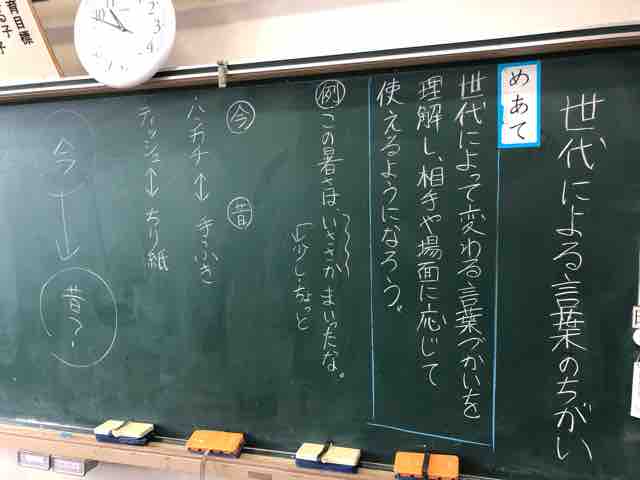 世代による言葉のちがい
めあて
世代によって変わる言葉づかいを
理解し、相手や場面に応じて
使えるようになろう。
例 この暑さは、いささかまいったな。
↳少し、ちょっと
今 昔
ハンカチ↔手ふき
ティッシュ↔ちり紙
今
↓
昔?
育目標